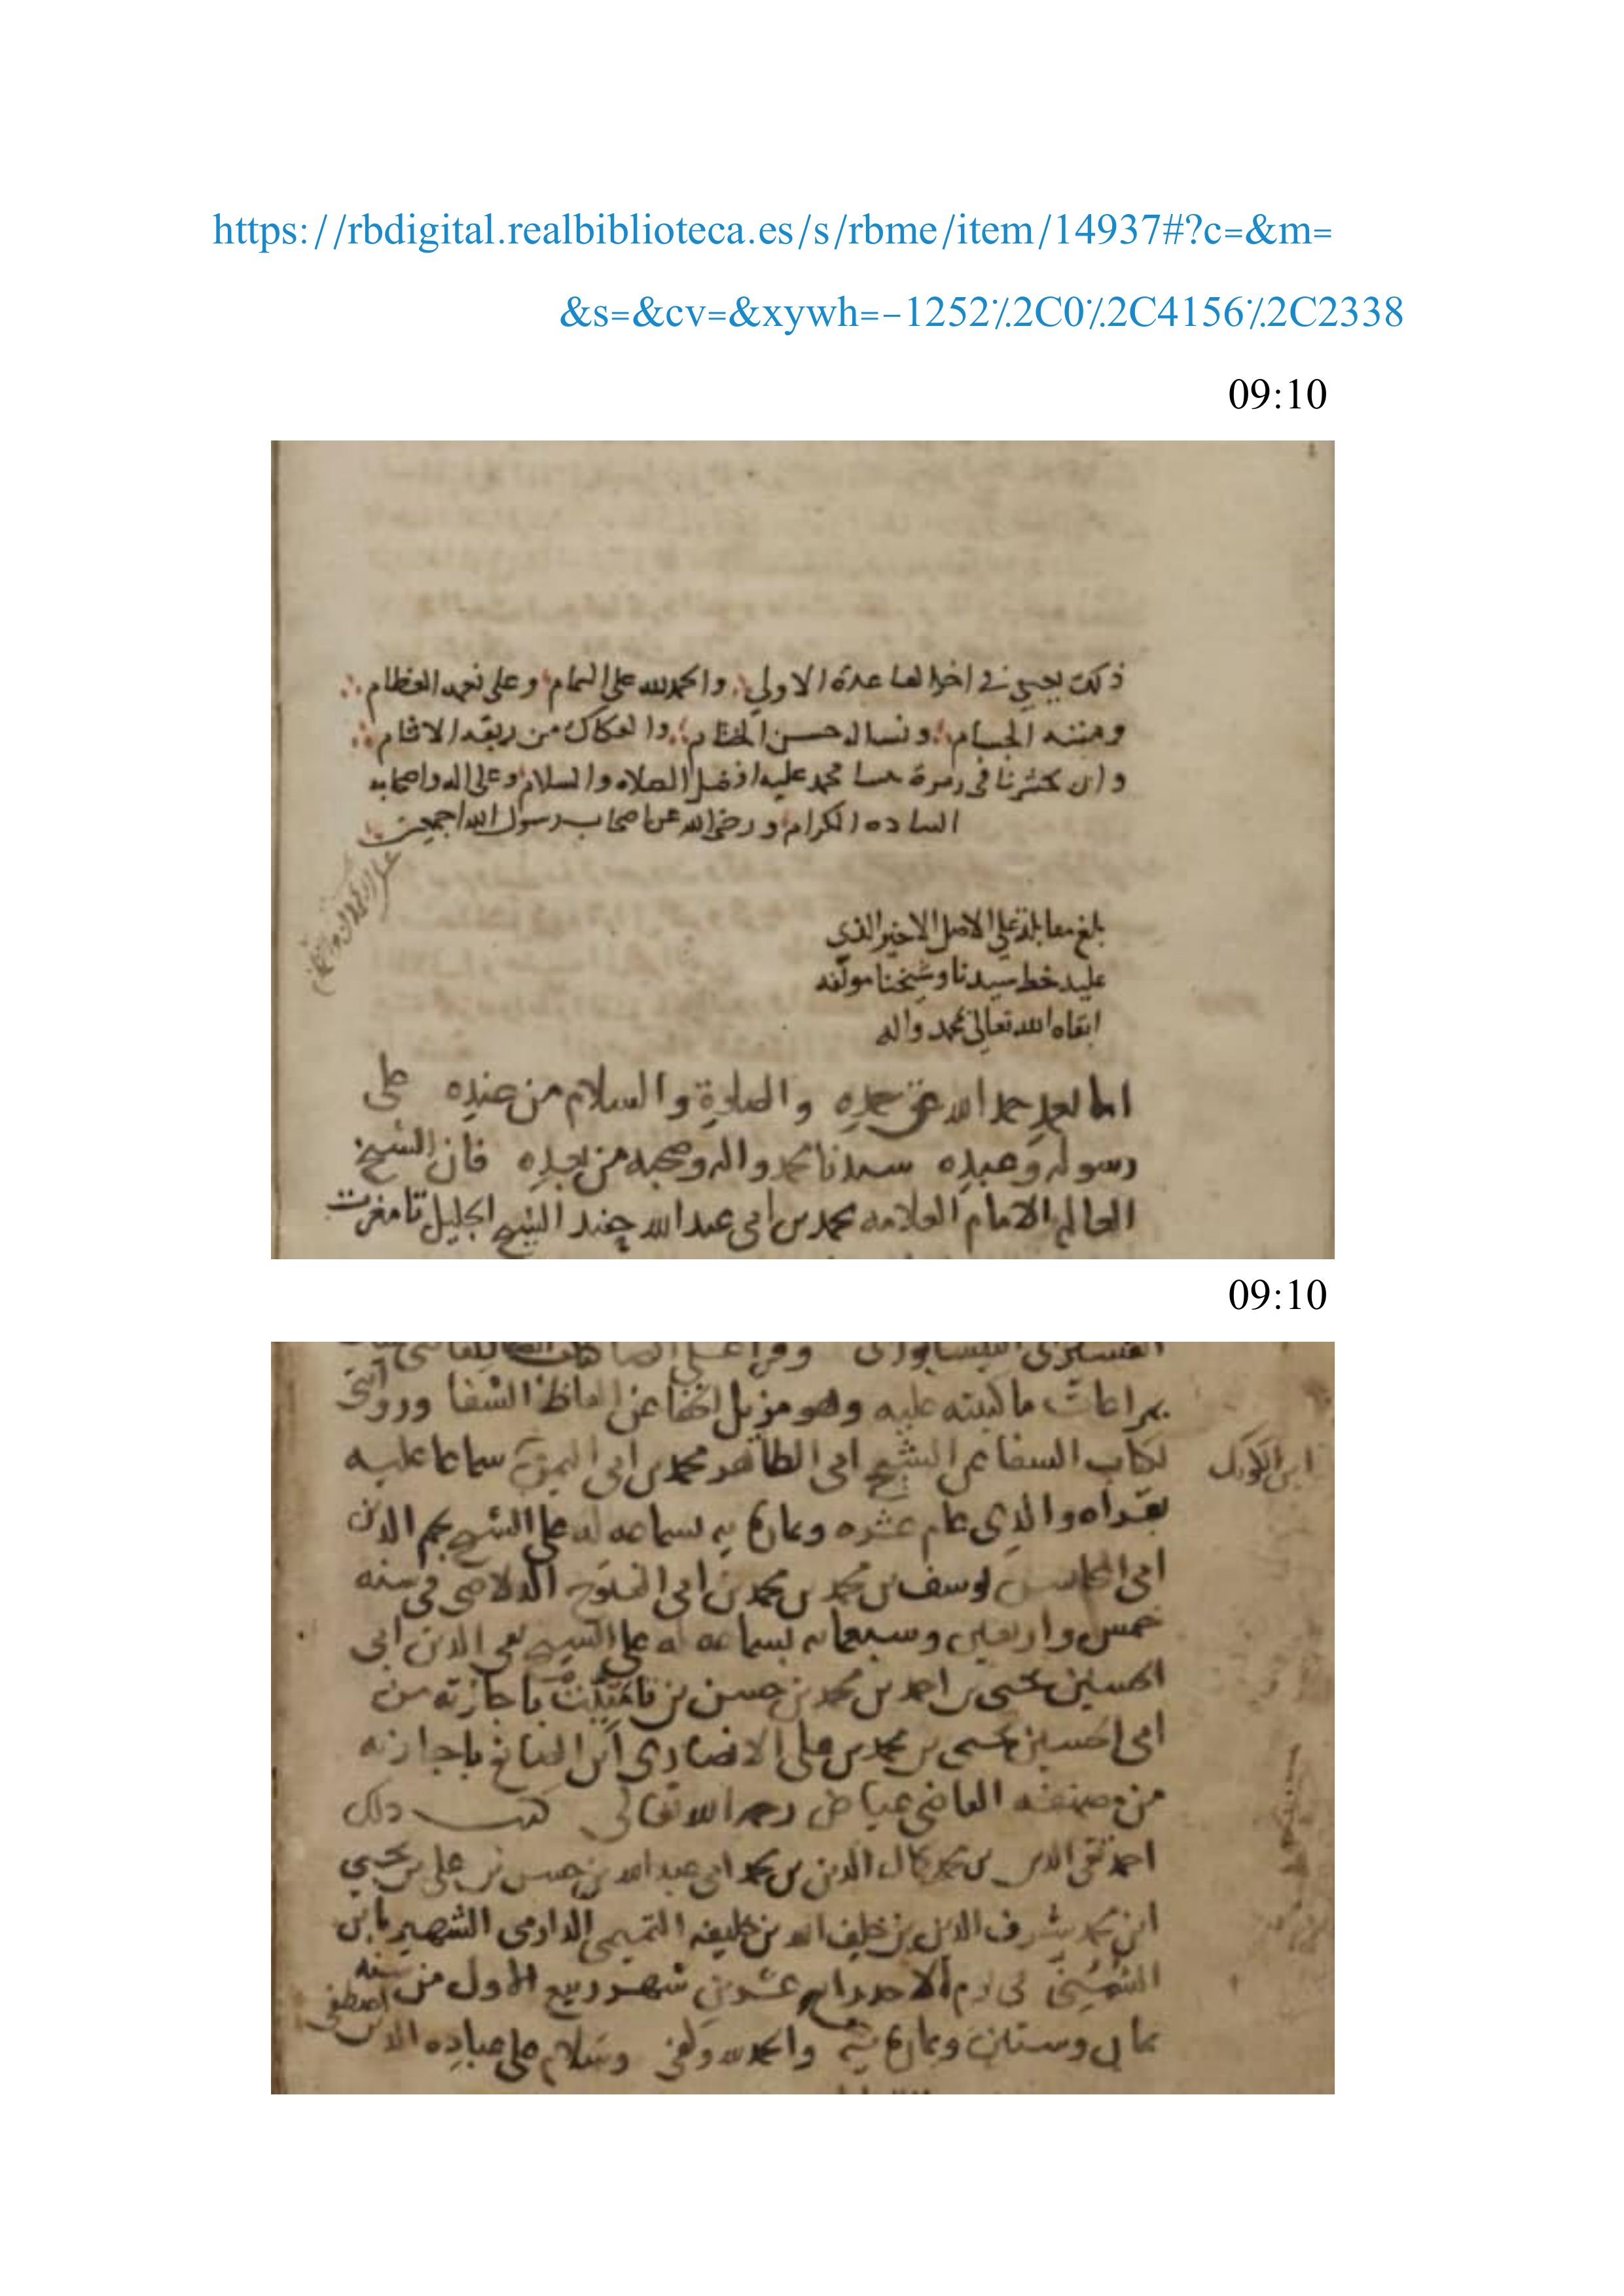 https://rbdigital.realbiblioteca.es/s/rbme/item/14937#?c=&m=
&s=&cv=&xywh=-1252٪2C0٪2C4156٪2C2338
09:10
والحمد لله على التمام وعلى نعمه العظام
ومننه الجسام ونساله حسن الختام والفكاك من ربقه الاثام
وان يحشرنا في زمرة محمد عليه افضل الصلاه والسلام وعلى اله واصحابه
الساده الكرام ورضي الله عن اصحاب رسول الله اجمعين
بلغ مقابلة على الاصل الاخير الذي
عليه خط سيدنا وشيخنا مولفه
ابقاه الله تعالى بمحمد واله
اما بعد حمد الله حق حمده والصلوة والسلام من عنده على
رسوله وعبده سيدنا محمد واله وصحبه من بعده فان الشيخ
العالم الامام العلامه محمد بن ابي عبد الله الشيخ الجليل
09:10
بمراعات ما كتبته عليه وهو مزيل الخفا عن الفاظ الشفا وروايتي
لكتاب الشفا عن الشيخ ابي الطاهر محمد بن ابي اليمن سماعا عليه
ابن الكويك
بقراه والدي عام عشره وثمان مايه بسماعه له على الشيخ نجم الدين
ابي المحاسن يوسف بن محمد بن محمد بن ابي الفتوح الدلاصي في سنه
خمس واربعين وسبعمايه بسماعه له على الشيخ تقي الدين ابي
الحسين يحيى بن احمد بن محمد بن حسن بن تامتيت باجازته من
ابي الحسين يحيى بن محمد بن علي الانصاري ابن الصايغ باجازته
من مصنفه القاضي عياض رحمه الله تعالى كتب ذلك
احمد تقي الدين بن محمد كمال الدين بن محمد ابي عبد الله بن حسن بن علي بن يحيى
ابن محمد شرف الدين بن خلف الله بن خليفه التميمي الدارمي الشهير بابن
الشمني في يوم الاحد رابع عشرين شهر ربيع الاول من سنه
ثمان وستين وثمان مايه والحمد لله وكفى وسلام على عباده الذين اصطفى